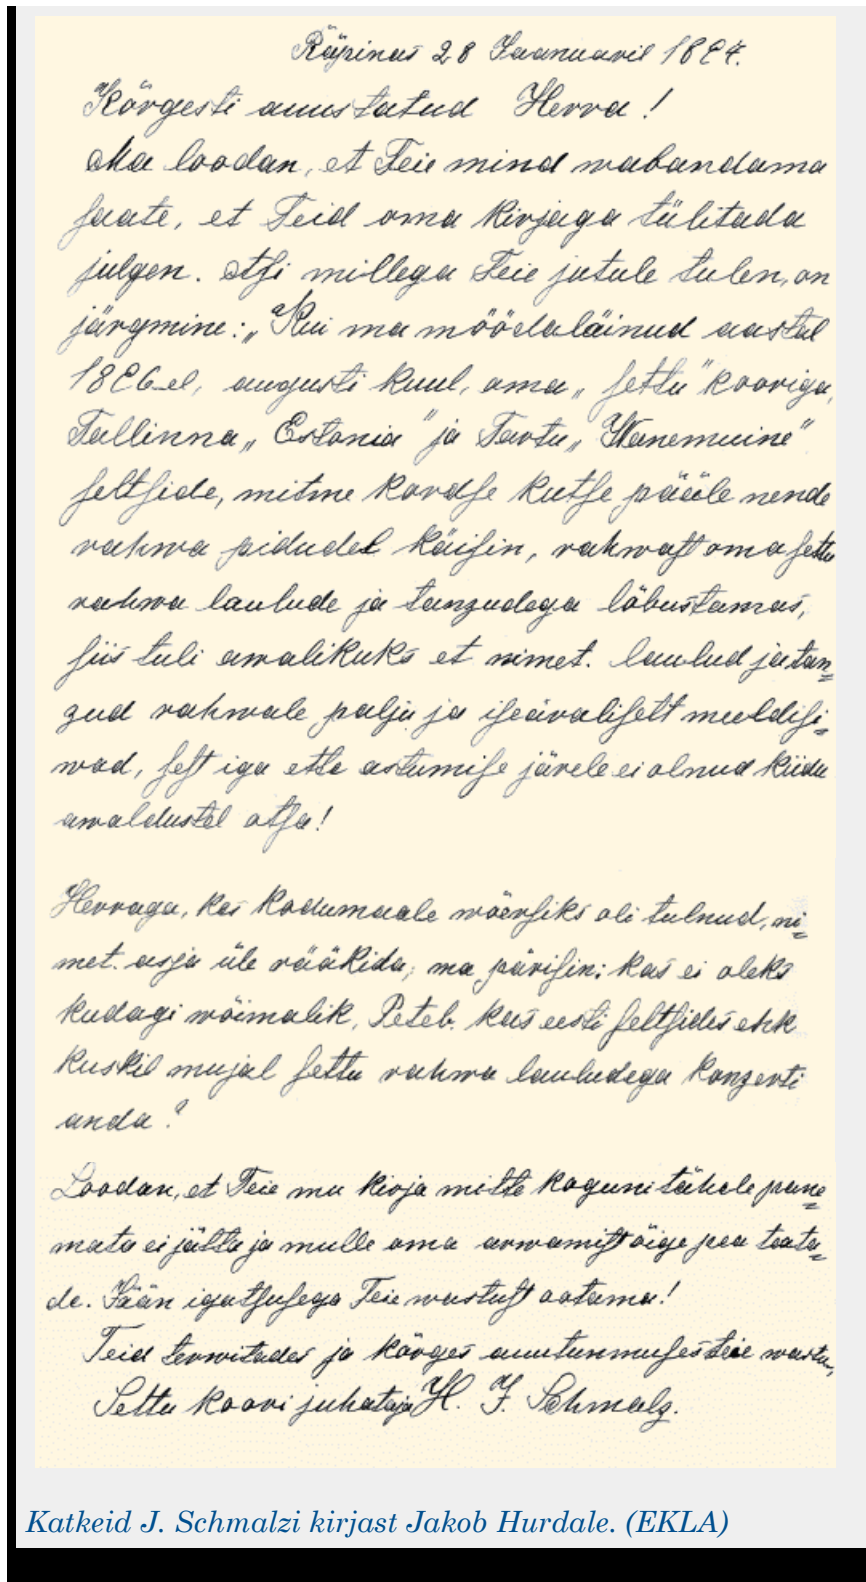 Räpinas 28 Jaanuaril 1897.
Kõrgesti auustatud Herra!
Ma loodan, et Teie mind wabandama
saate, et Teid oma kirjaga tülitada
julgen. Asi millega Teie jutule tulen, on
järgmine: „Kui ma möödaläinud aastal
1896-el, augusti kuul, oma „settu" kooriga,
Tallinna „Estonia" ja Tartu „Wanemuine"
seltside, mitme kordse kutse pääle nende
rahwa pidudel käisin, rahwast oma settu
rahwa laulude ja tanzudega lõbustamas,
siis tuli awalikuks et nimet. laulud ja tan=
zud rahwale palju ja iseäraliselt meeldisi=
wad, sest iga ette astumise järele ei olnud kiidu
awaldustel otsa!
Herraga, kes kodumaale wõersiks oli tulnud, ni=
met. asja üle rääkida, ma pärisin: kas ei oleks
kudagi wõimalik, Peteb. kas eesti seltsides ehk
kuskil mujal settu rahwa lauludega konzerti
anda?
Loodan, et Teie mu kirja mitte koguni tähele pane=
mata ei jätta ja mulle oma arwamist õige pea teata=
de. Jään igatsusega Teie wastust ootama!
Teid terwitades ja kõrges auutunmuses teie wastu,
Settu koori juhataja H. J. Schmalz.
Katkeid J. Schmalzi kirjast Jakob Hurdale. (EKLA)